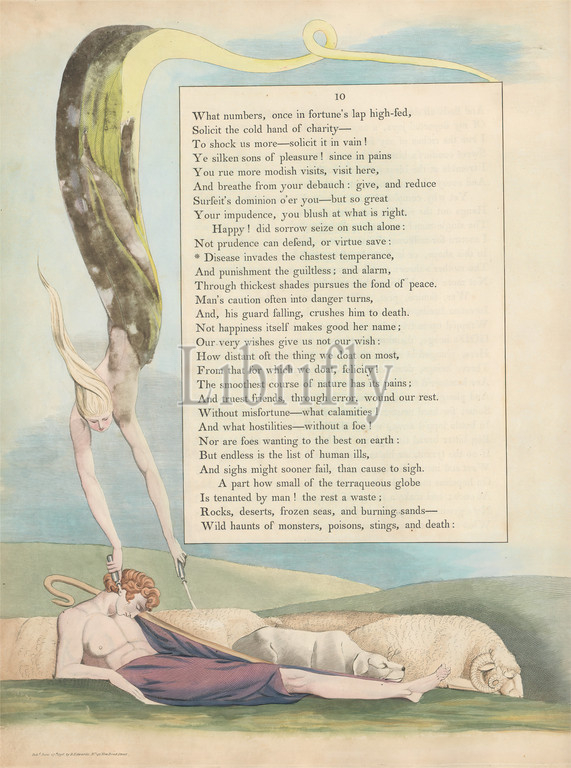 10
What numbers, once in fortune's lap high-fed,
Solicit the cold hand of charity—
To shock us more—solicit it in vain!
Ye silken sons of pleasure! since in pains
You rue more modish visits, visit here,
And breathe from your debauch: give, and reduce
Surfeit's dominion o'er you—but so great
Your impudence, you blush at what is right.
Happy! did sorrow seize on such alone:
Not prudence can defend, or virtue save:
* Disease invades the chastest temperance,
And punishment the guiltless; and alarm,
Through thickest shades pursues the fond of peace.
Man's caution often into danger turns,
And, his guard falling, crushes him to death.
Not happiness itself makes good her name;
Our very wishes give us not our wish:
How distant oft the thing we doat on most,
From that for which we doat, felicity!
The smoothest course of nature has its pains;
And truest friends, through error, wound our rest.
Without misfortune—what calamities!
And what hostilities—without a foe!
Nor are foes wanting to the best on earth:
But endless is the list of human ills,
And sighs might sooner fail, than cause to sigh.
A part how small of the terraqueous globe
Is tenanted by man! the rest a waste;
Rocks, deserts, frozen seas, and burning sands—
Wild haunts of monsters, poisons, stings, and death:
Librifly